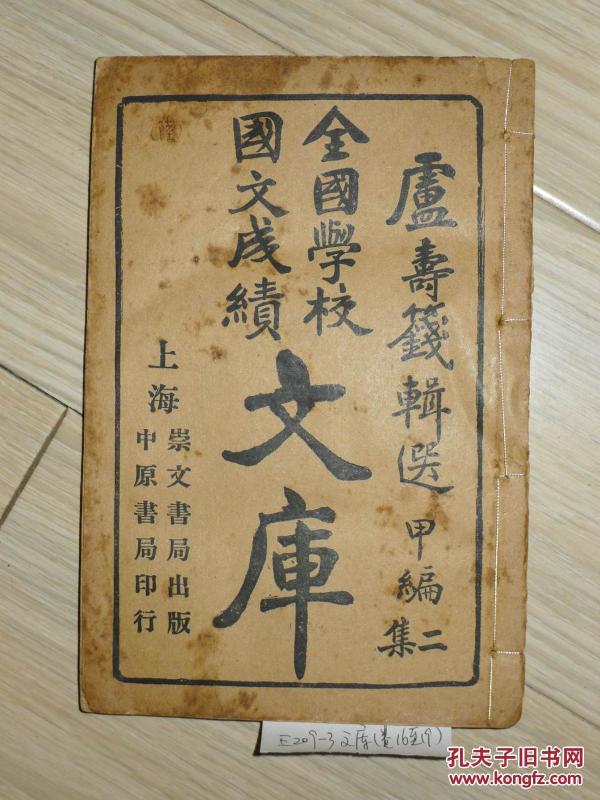 盧壽籛輯選 甲編二集
全國學校
國文成績
文庫
上海
崇文書局出版
中原書局印行
E209-3文库(卷16至19)
孔夫子旧书网
www.kongfz.com